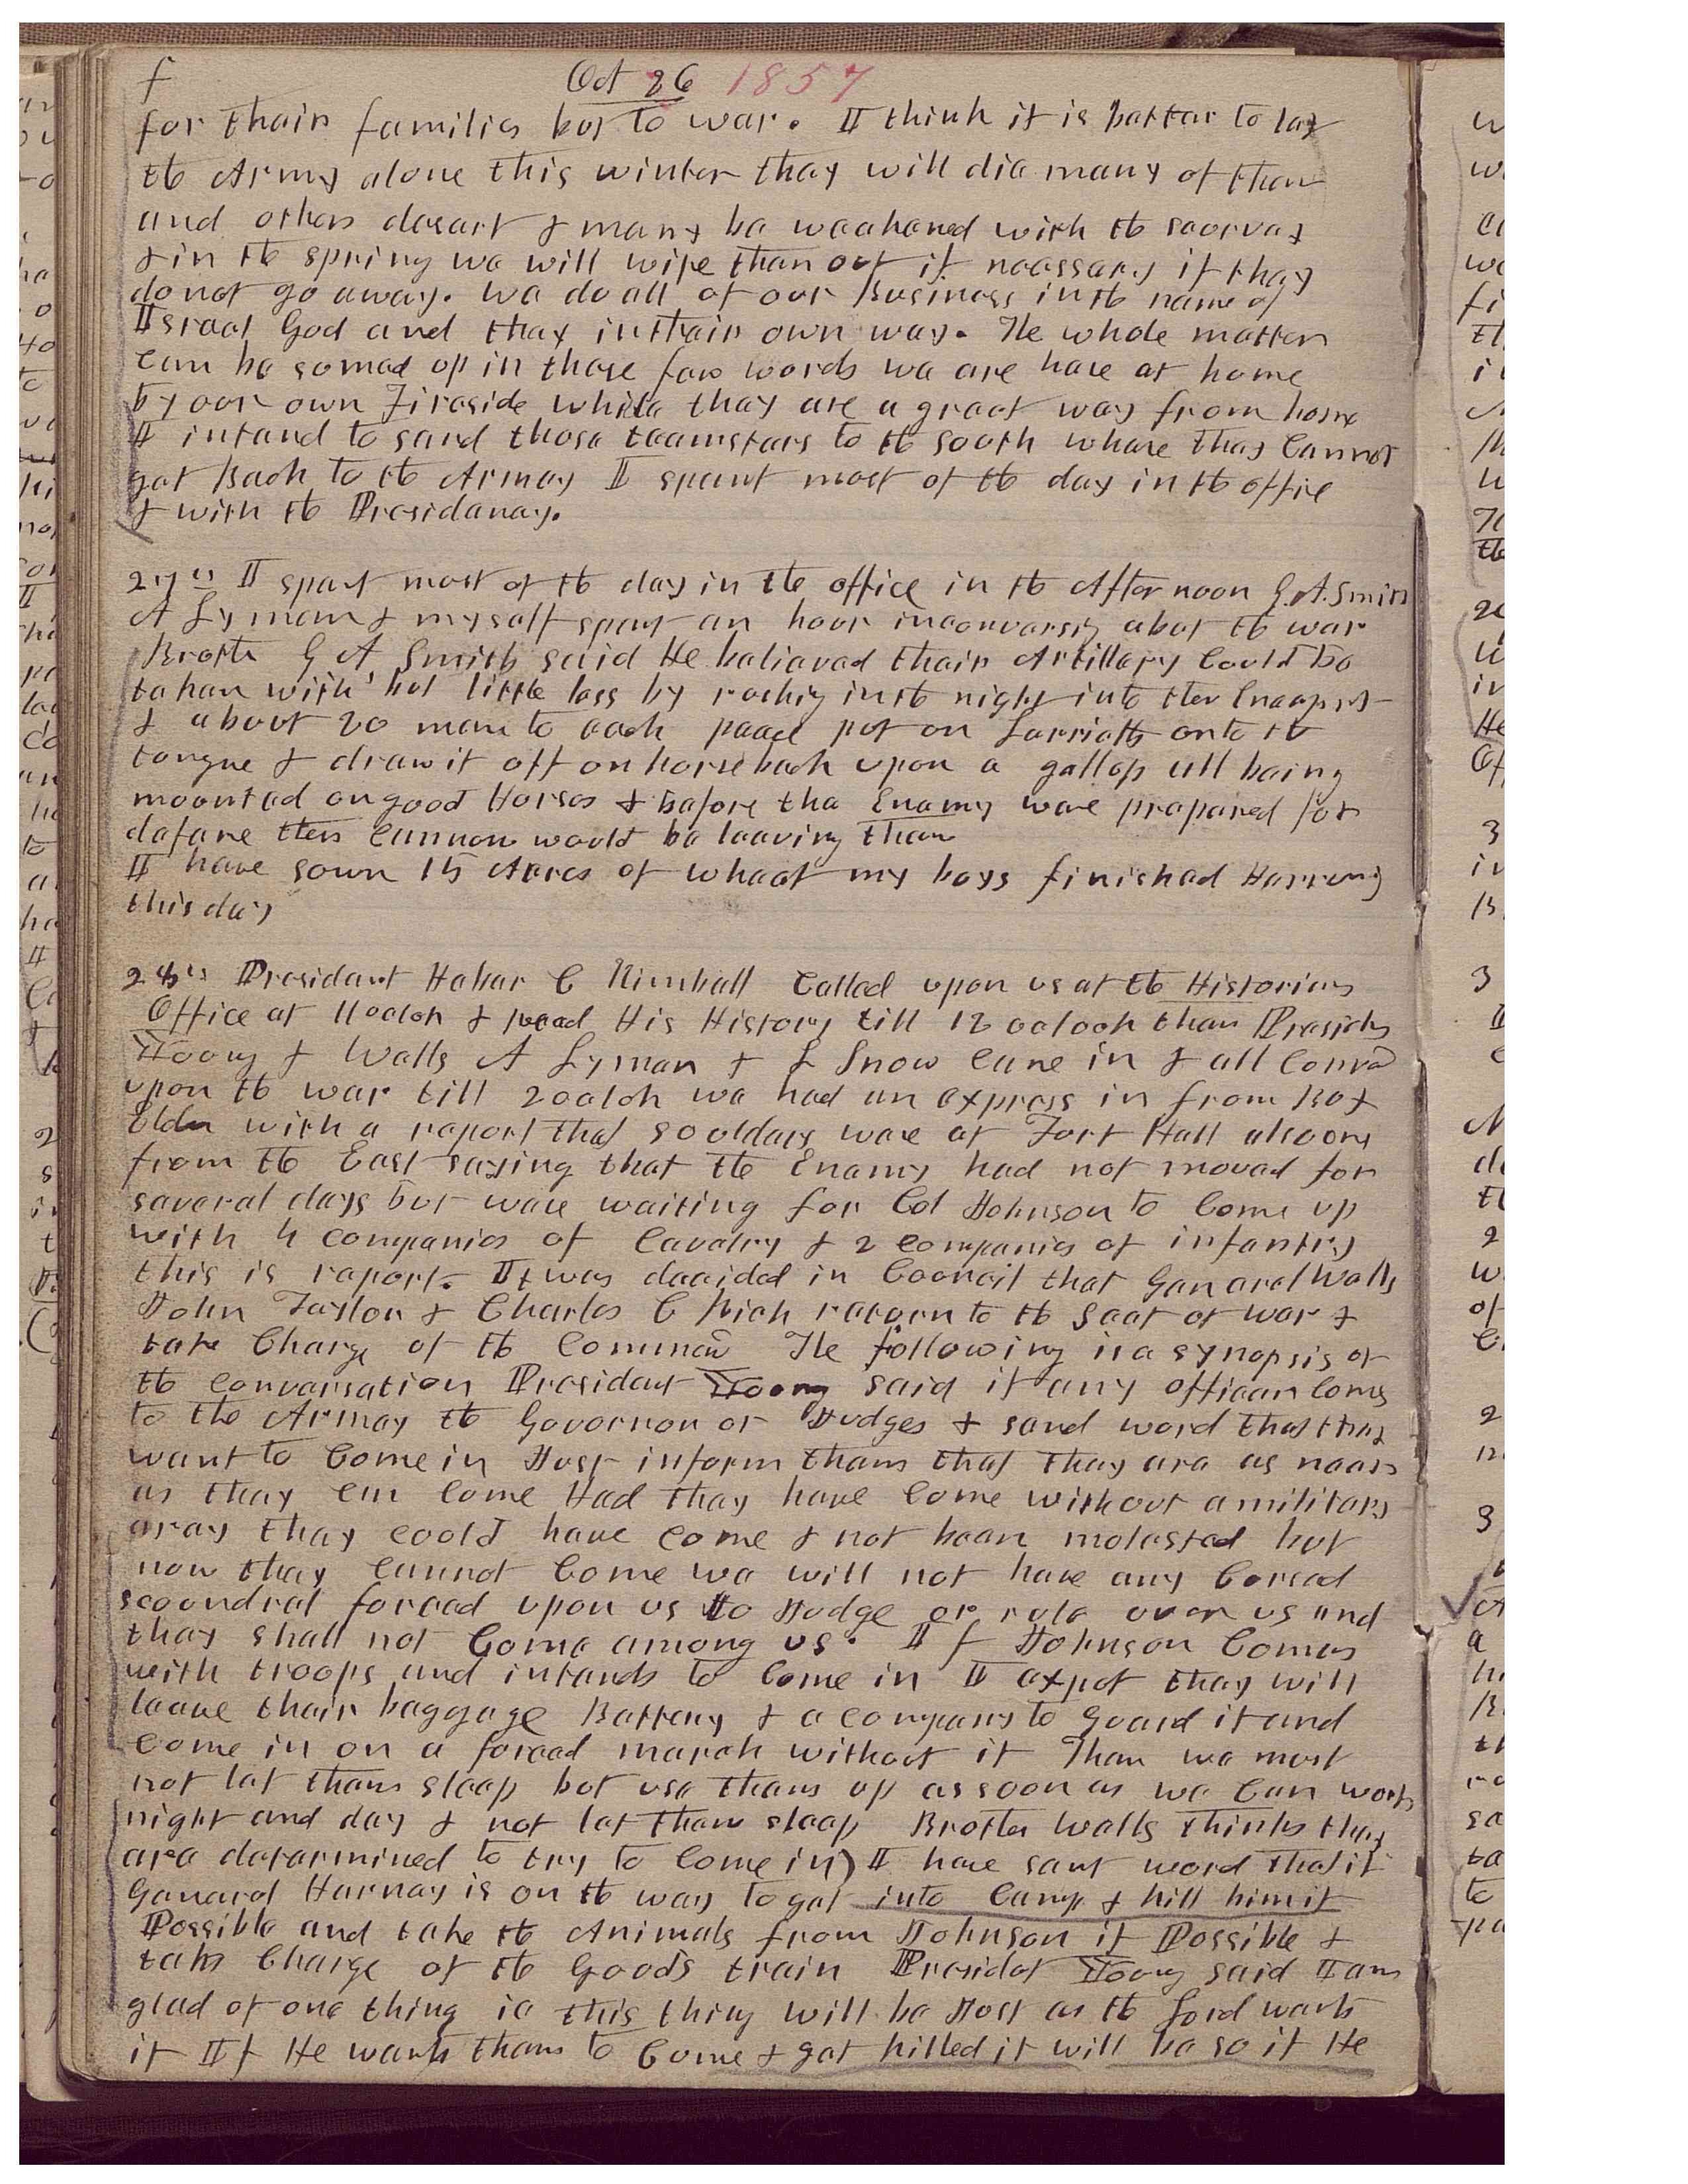 f Oct 26 1857
for their families but to war. I think it is better to let
the Army alone this winter they will die many of them
and others desert & many be weakened with the scurvey
& in the spring we will wipe them out if necessary if they
do not go away. We do all of our Business in the name of
Israel God and they in their own way. The whole matter
can be sumed up in these few words we are here at home
by our own Fireside while they are a great way from home
I intend to send those teamsters to the south whare they Cannot
get Back to the Armey I spent most of the day in the office
& with the Presidency.
27th I spent most of the day in the office in the Afternoon G. A. Smith
A Lyman & myself spent an hour in conversing about the war
Brother G A Smith said He believed their Artillery Could be
taken with but little loss by rushing in the night into their
& about 20 men to each peace put on Larriatts onto the
tongue & draw it off on horseback upon a gallop all being
mounted on good Horses & before the Enemy were prepared for
defence their Cannon would be leaving them
I have sown 15 Acres of wheat my boys finished Harrowing
this day
28th President Heber C Kimball Called upon us at the Historians
Office at 11 oclok & read His History till 12 oclock then President
Young & Wells A Lyman & L Snow came in & all Convd
upon the war till 2 oclok we had an express in from Box
Elder with a report that souldiers were at Fort Hall also one
from the East saying that the Enemy had not moved for
several days but ware waiting for Col Johnson to Come up
with 4 companies of Cavalry & 2 companies of infantry
this is report. It was decided in Council that General Wells
John Taylor & Charles C Rich return to the Seat of war &
take Charge of the Command The following is a synopsis of
the conversation President Young said if any officer Coms
to the Armey the Govornor or Judges & send word that they
want to Come in Just inform them that they are as near
as they can Come Had they have Come without a military
aray they could have come & not been molested but
now they Cannot Come we will not have any Cursed
scoundrel forced upon us to Judge or rule over us and
they shall not Come among us. If Johnson Comes
with troops and intends to Come in I expet they will
leave their baggage Battery & a company to Guard it and
Come in on a forced march without it Then we must
not let them sleep but use them up as soon as we Can work
night and day & not let them sleep Brother Wells thinks they
are determined to try to Come in) I have sent word that if
General Harney is on the way to get into Camp & kill him if
Possible and take the Animals from Johnson if Possible &
take Charge of the Goods train Presidet Young said I am
glad of one thing ie this thing will be Just as the Lord wants
it If He wants them to Come & get killed it will be so if He